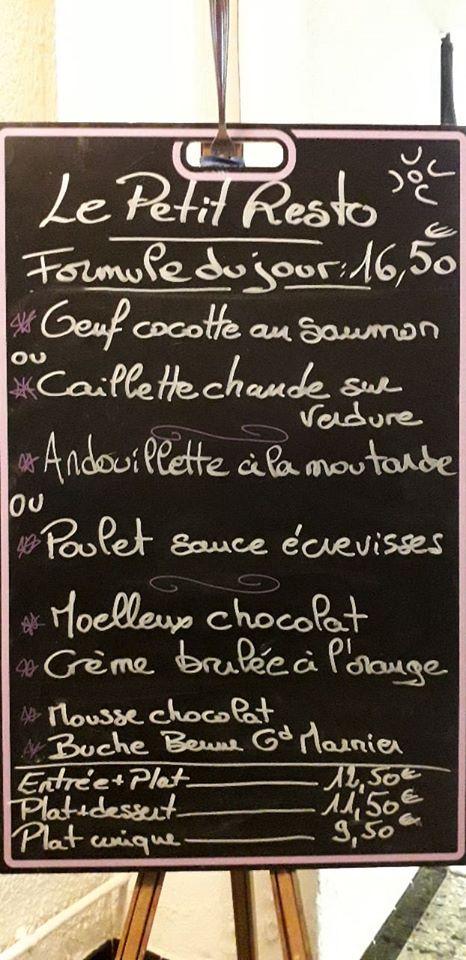 Le Petit Resto
Formule du jour: 16,50€
* Oeuf cocotte au saumon
ou
* Caillette chaude sur
verdure
* Andouillette à la moutarde
OU
* Poulet sauce écrevisses
* Moelleux chocolat
* Crème brulée à l'orange
* Mousse chocolat
* Buche Beurre Gd Marnier
Entrée + Plat 12,50€
Plat + dessert 11,50€
Plat unique 9,50€